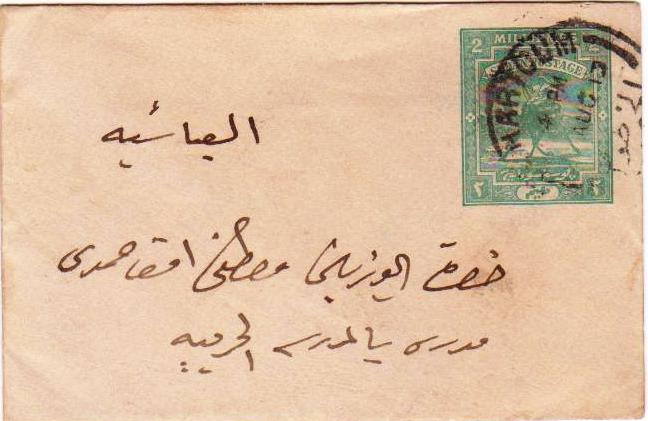 2 MILLIEMES 2
SUDAN POSTAGE
KHARTOUM
4 PM
AUG
٢ ٢
العباسيه
حضرة اليوزباشي مصطفى افندي حمدي
مدرس بالمدرسه الحربيه